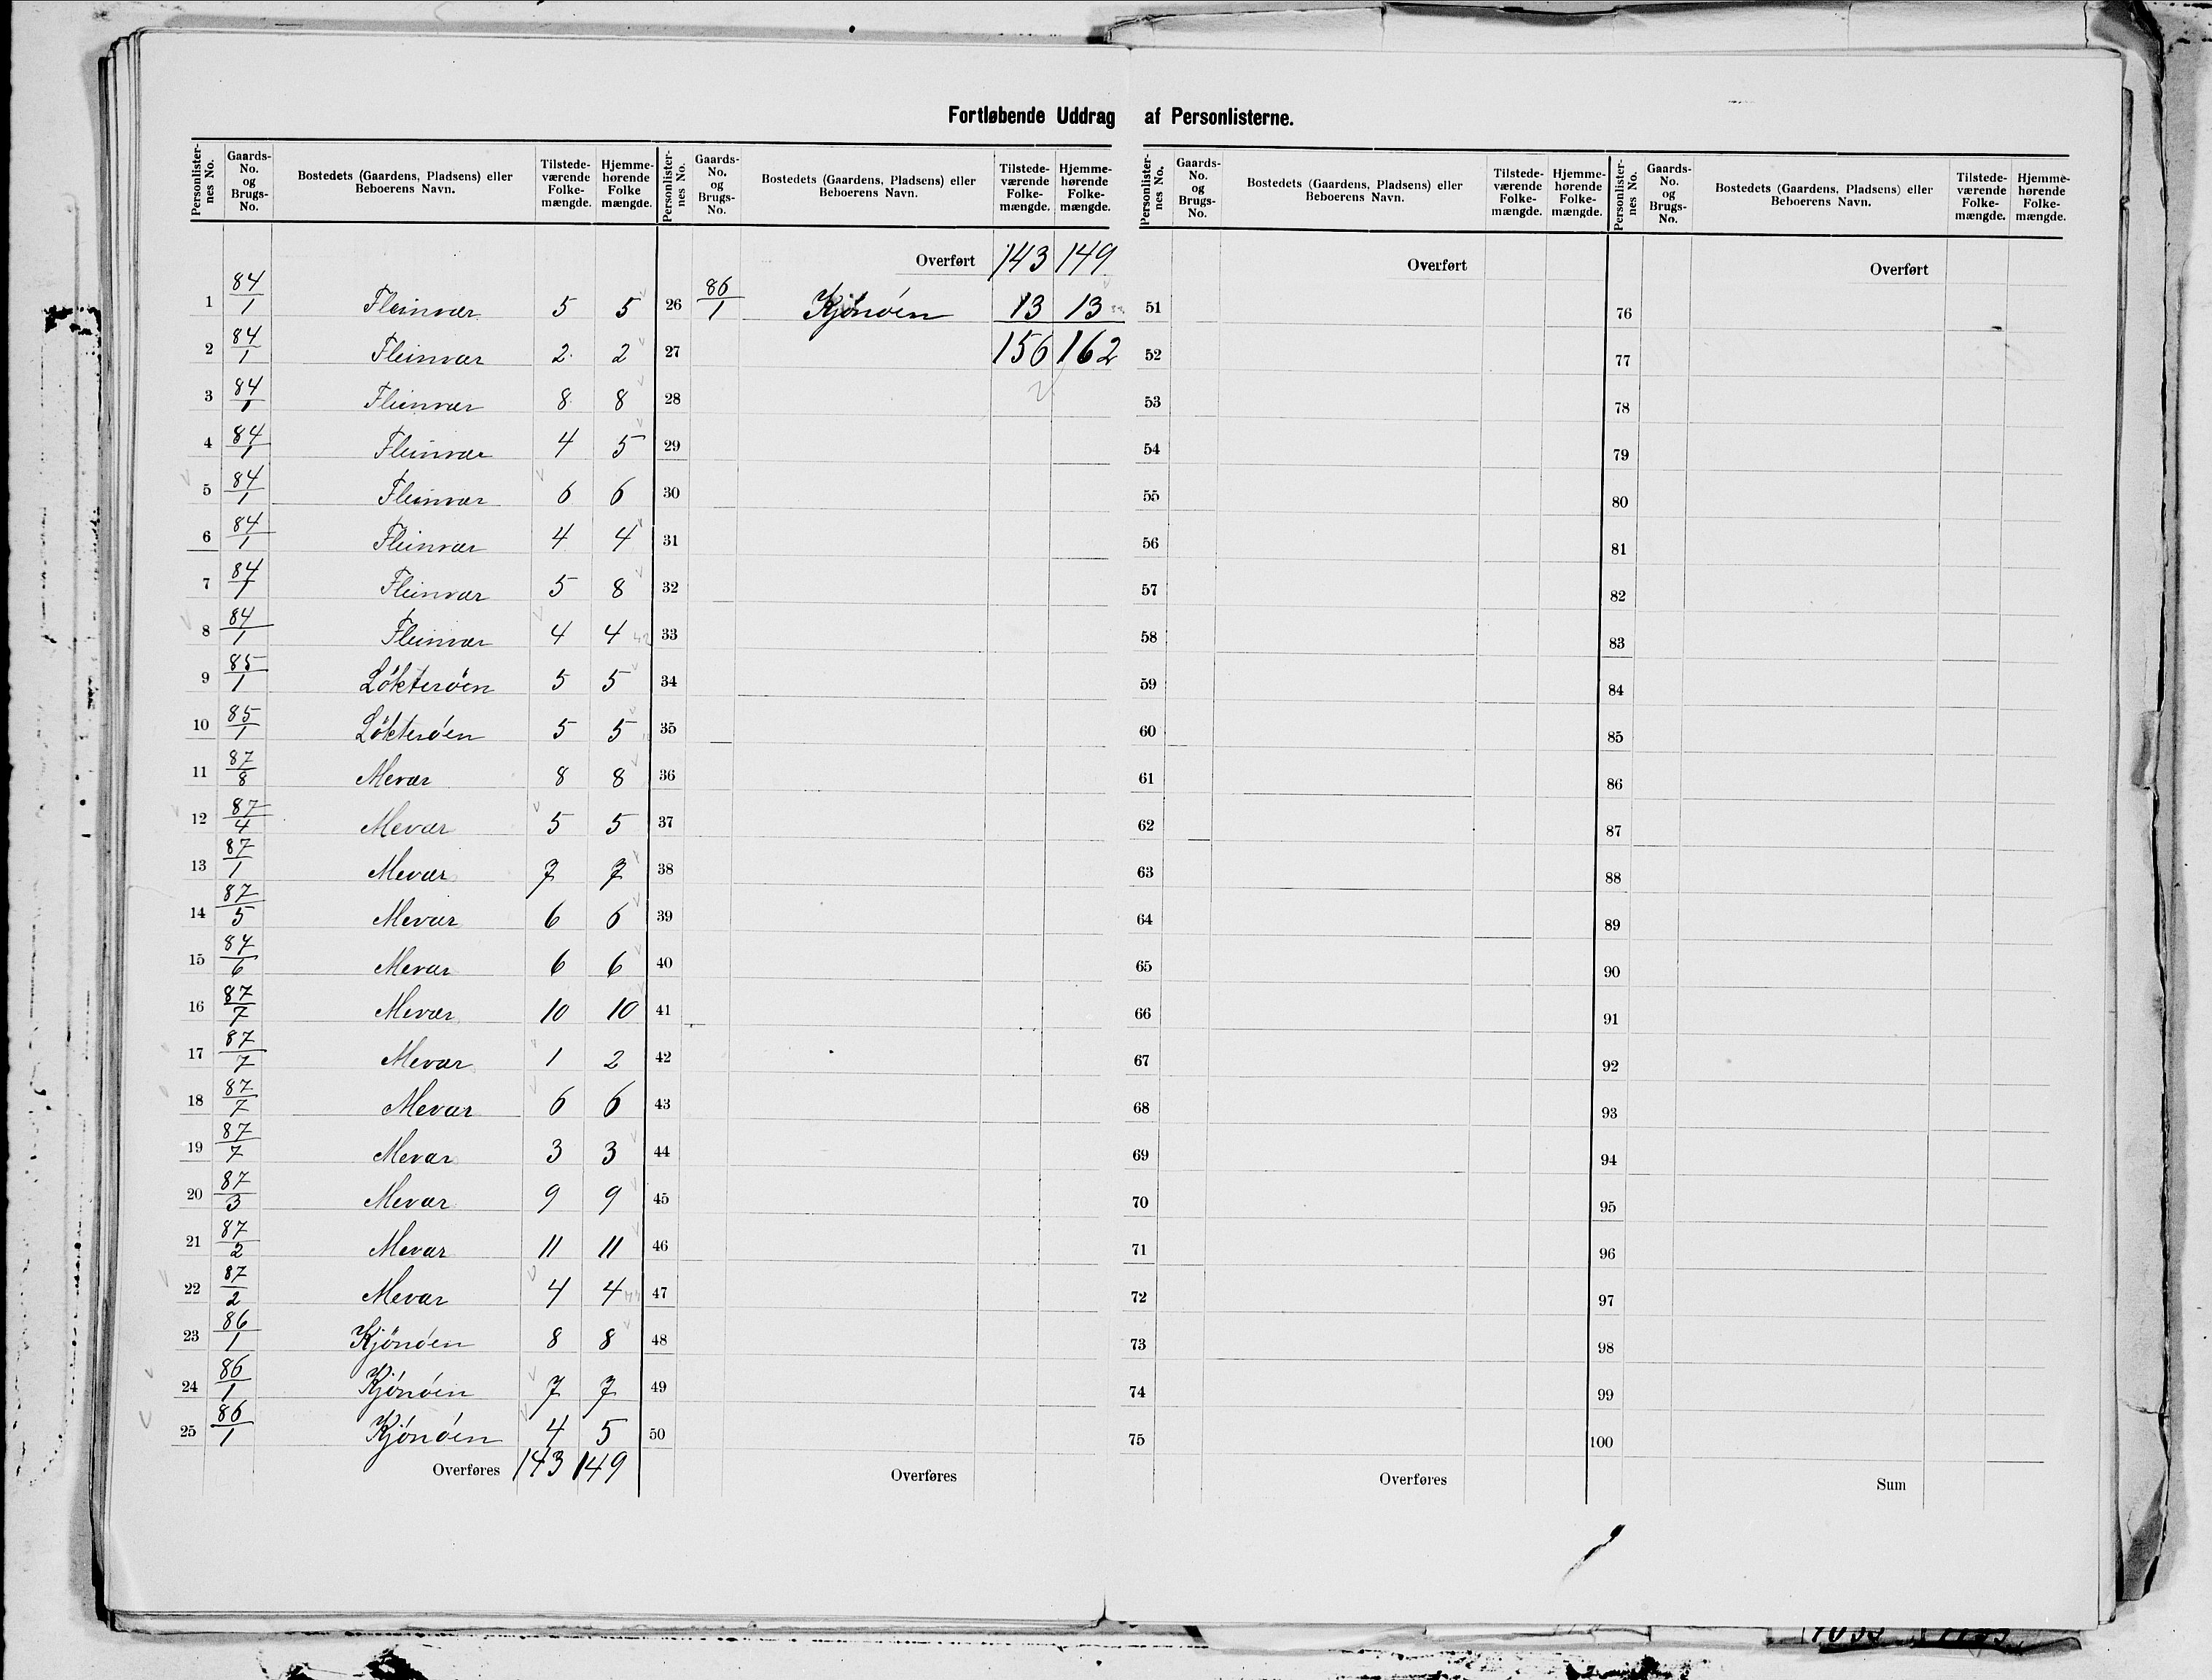 Fortløbende Uddrag af Personlisterne.
Personlister-nes No. | Gaards-No. og Brugs-No. | Bostedets (Gaardens, Pladsens) eller Beboerens Navn. | Tilstede-værende Folke-mængde. | Hjemme-hørende Folke mængde.
1 84/1 Fleinvær 5 5
2 84/1 Fleinvær 2 2
3 84/1 Fleinvær 8 8
4 84/1 Fleinvær 4 5
5 84/1 Fleinvær 6 6
6 84/1 Fleinvær 4 4
7 84/1 Fleinvær 5 8
8 84/1 Fleinvær 4 4 42
9 85/1 Løkterøen 5 5
10 85/1 Løkterøen 5 5
11 87/8 Mevær 8 8
12 87/4 Mevær 5 5
13 87/1 Mevær 7 7
14 87/5 Mevær 6 6
15 87/6 Mevær 6 6
16 87/7 Mevær 10 10
17 87/7 Mevær 1 2
18 87/7 Mevær 6 6
19 87/7 Mevær 3 3
20 87/3 Mevær 9 9
21 87/2 Mevær 11 11
22 87/2 Mevær 4 4
23 86/1 Kjønøen 8 8
24 86/1 Kjønøen 7 7
25 86/1 Kjønøen 4 5
Overføres 143 149
Personlister-nes No. | Gaards-No. og Brugs-No. | Bostedets (Gaardens, Pladsens) eller Beboerens Navn. | Tilstede-værende Folke-mængde. | Hjemme-hørende Folke-mængde.
Overført 143 149
26 86/1 Kjønøen 13 13
27 156 162
28
29
30
31
32
33
34
35
36
37
38
39
40
41
42
43
44
45
46
47
48
49
50
Overføres
Personlister-nes No. | Gaards-No. og Brugs-No. | Bostedets (Gaardens, Pladsens) eller Beboerens Navn. | Tilstede-værende Folke-mængde. | Hjemme-hørende Folke-mængde.
Overført
51
52
53
54
55
56
57
58
59
60
61
62
63
64
65
66
67
68
69
70
71
72
73
74
75
Overføres
Personlister-nes No. | Gaards-No. og Brugs-No. | Bostedets (Gaardens, Pladsens) eller Beboerens Navn. | Tilstede-værende Folke-mængde. | Hjemme-hørende Folke-mængde.
Overført
76
77
78
79
80
81
82
83
84
85
86
87
88
89
90
91
92
93
94
95
96
97
98
99
100
Sum